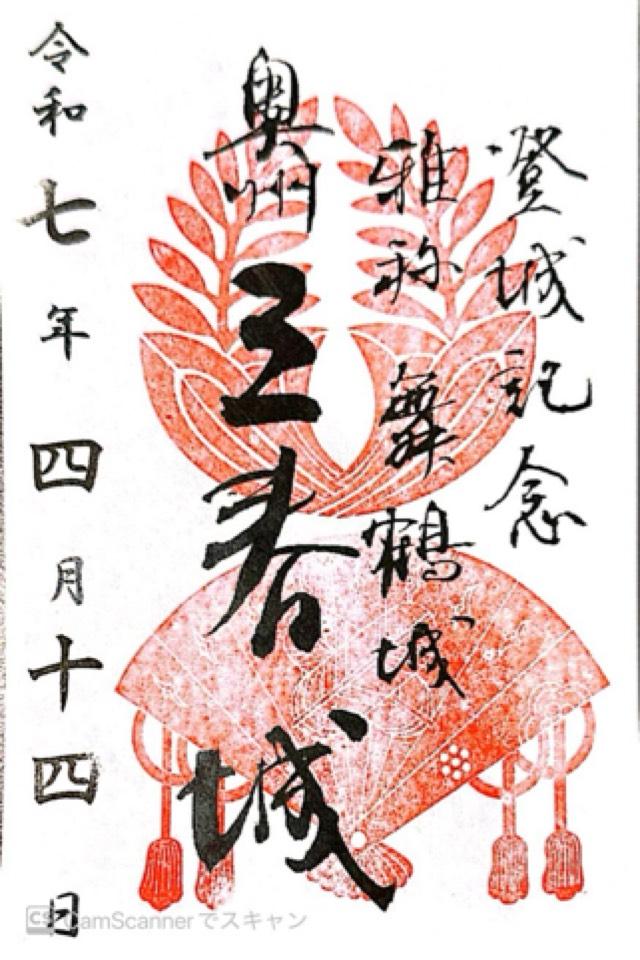 登城記念
雅称 舞鶴城
奥州
三春
城
令和七年四月十四日
CS CamScannerでスキャン